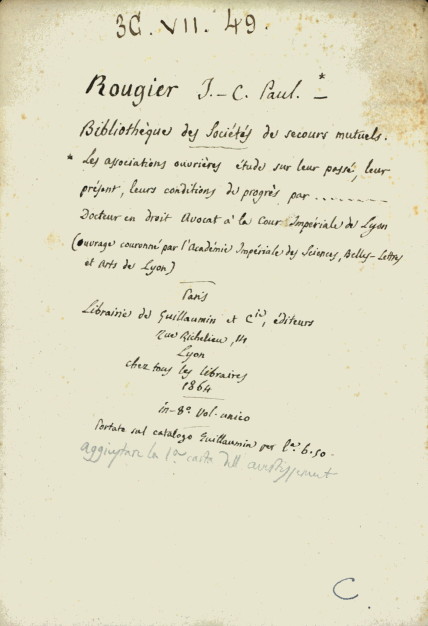 3G. VII. 49.
Rougier J.-C. Paul. * —
Bibliothèque des Sociétés de secours mutuels.
* Les associations ouvrières étude sur leur passé, leur
présent, leurs conditions de progrès par ........
Docteur en droit Avocat à la Cour Impériale de Lyon
(ouvrage couronné par l'Académie Impériale des Sciences, Belles-Lettres
et Arts de Lyon)
Paris
Librairie de Guillaumin et Cie, éditeurs
Rue Richelieu, 14
Lyon
chez tous les libraires
1864
in-8º Vol. unico
Portato sul catalogo Guillaumin per L.e 6.50.
Aggiuntare la 1a carta dell'avertissement
C